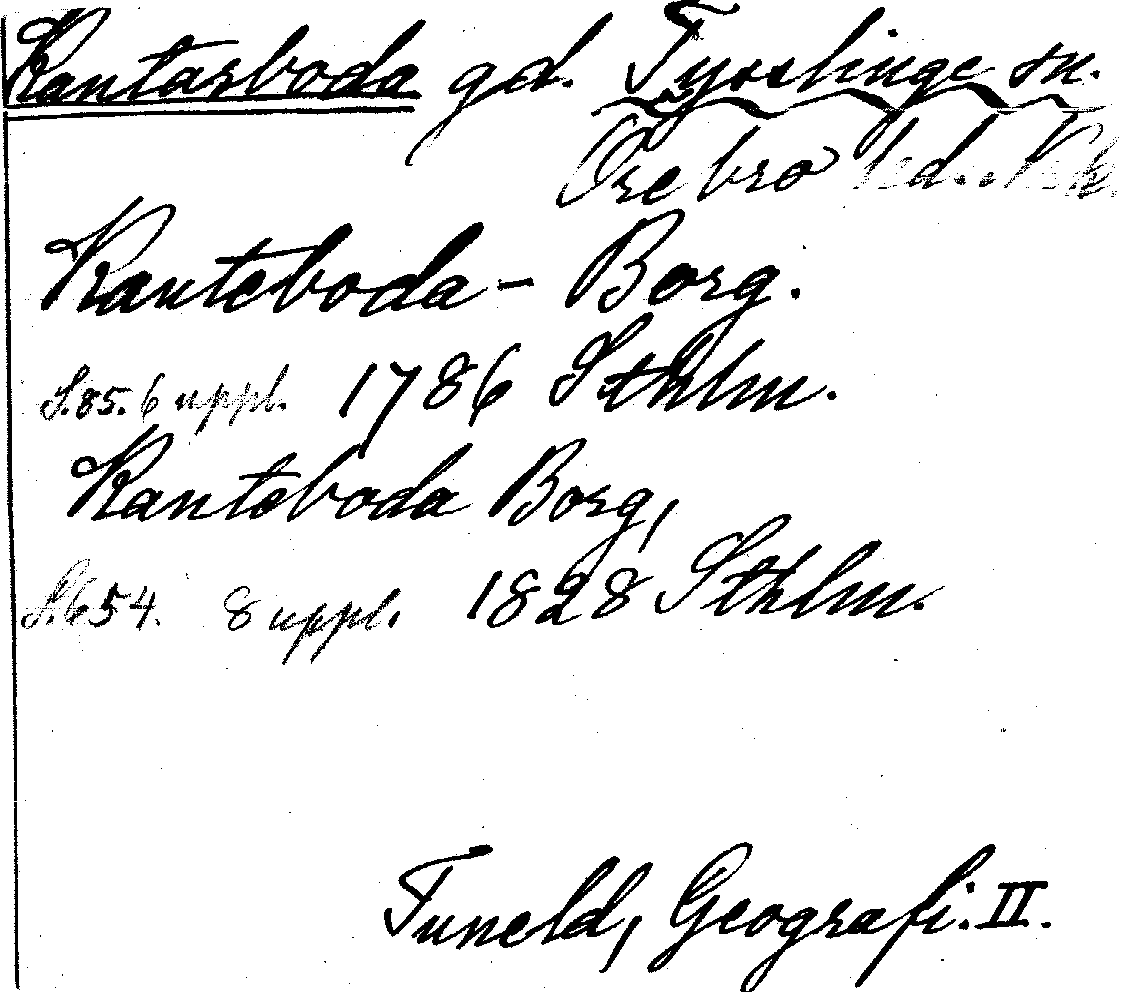 Kantarboda gd. Tysslinge sn.
Örebro hd. Nrk.
Kanteboda - Borg.
S. 85. 6 uppl. 1786 Sthlm.
Kanteboda Borg,
S. 654. 8 uppl. 1828 Sthlm.
Tuneld, Geografi. II.